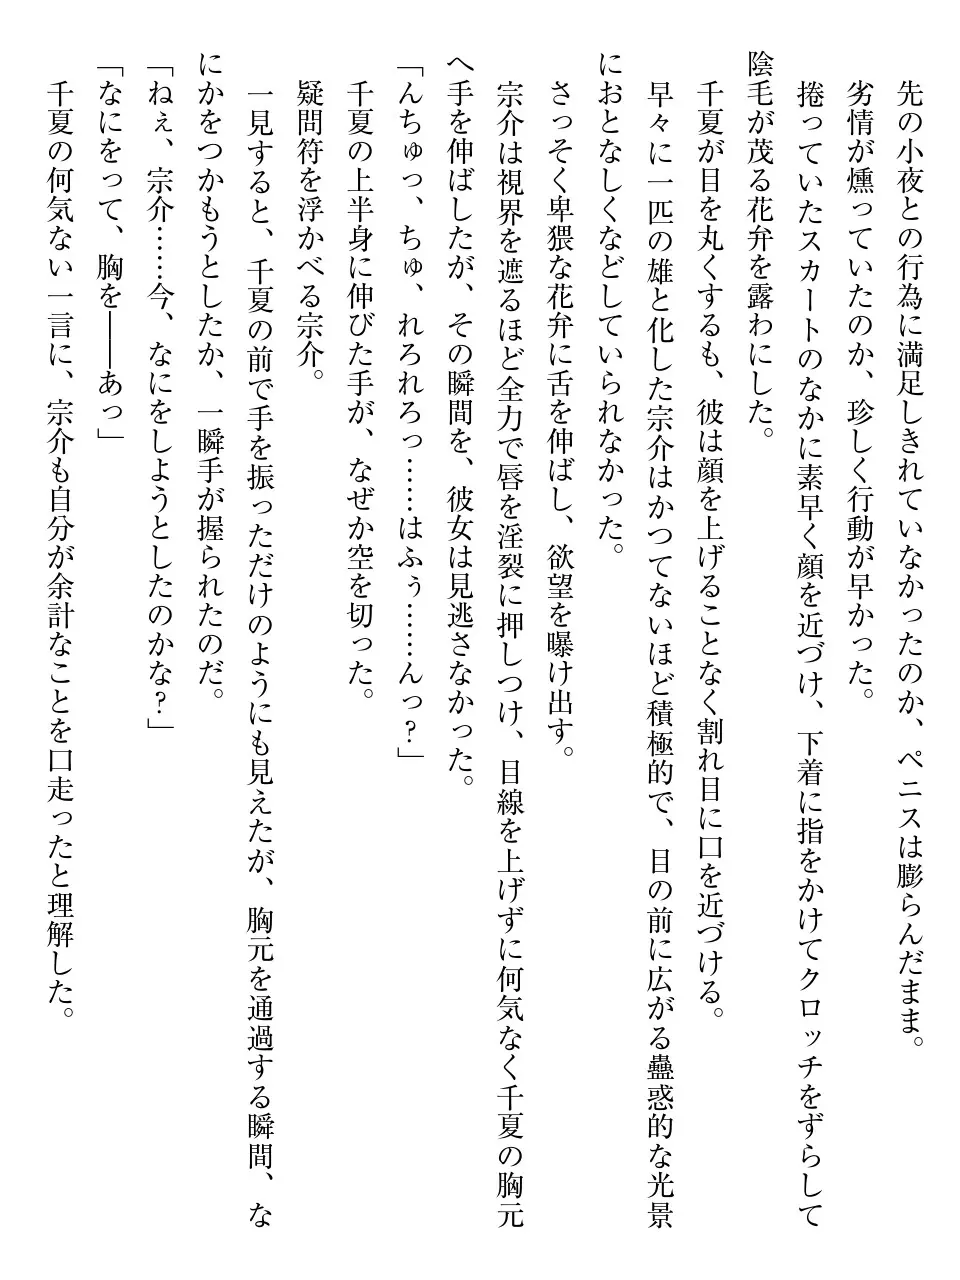 先の小夜との行為に満足しきれていなかったのか、ペニスは膨らんだまま。
劣情が燻っていたのか、珍しく行動が早かった。
捲っていたスカートのなかに素早く顔を近づけ、下着に指をかけてクロッチをずらして
陰毛が茂る花弁を露わにした。
千夏が目を丸くするも、彼は顔を上げることなく割れ目に口を近づける。
早々に一匹の雄と化した宗介はかつてないほど積極的で、目の前に広がる蠱惑的な光景
におとなしくなどしていられなかった。
さっそく卑猥な花弁に舌を伸ばし、欲望を曝け出す。
宗介は視界を遮るほど全力で唇を淫裂に押しつけ、目線を上げずに何気なく千夏の胸元
へ手を伸ばしたが、その瞬間を、彼女は見逃さなかった。
「んちゅっ、ちゅ、れろれろっ……はふぅ……んっ?」
千夏の上半身に伸びた手が、なぜか空を切った。
疑問符を浮かべる宗介。
一見すると、千夏の前で手を振っただけのようにも見えたが、胸元を通過する瞬間、な
にかをつかもうとしたか、一瞬手が握られたのだ。
「ねぇ、宗介……今、なにをしようとしたのかな?」
「なにをって、胸を――あっ」
千夏の何気ない一言に、宗介も自分が余計なことを口走ったと理解した。